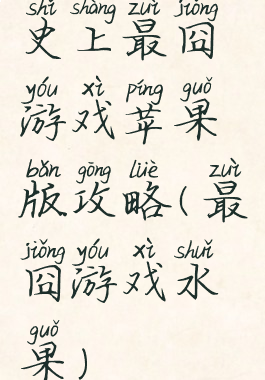 shǐ shàng zuì jiǒng
史上最囧
yóu xì píng guǒ
游戏苹果
bǎn gōng lüè zuì
版攻略(最
jiǒng yóu xì shuǐ
囧游戏水
guǒ
果)